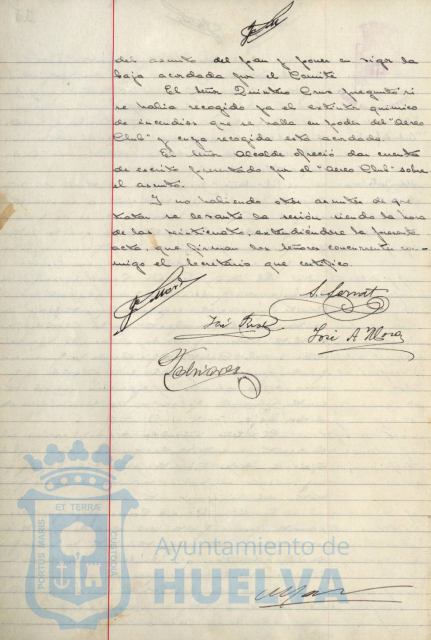 del asunto del pan y poner en vigor la
baja acordada por el Comité
El Señor Quintero Cruz preguntó si
se había recogido ya el extintor químico
de incendios que se halla en poder del "Aereo
Club" y cuya recogida está acordada.
El Señor Alcalde ofreció dar cuenta
de escrito presentado por el "Aereo Club" sobre
el asunto.
Y no habiendo otros asuntos de que
tratar se levantó la sesión siendo la hora
de las veinticuatro, extendiéndose la presente
acta, que firman los señores concurrentes con-
migo el Secretario que certifico.
José
José A Mora
PORTUS MARIS
ET TERRÆ
CUSTODIA
Ayuntamiento de
HUELVA